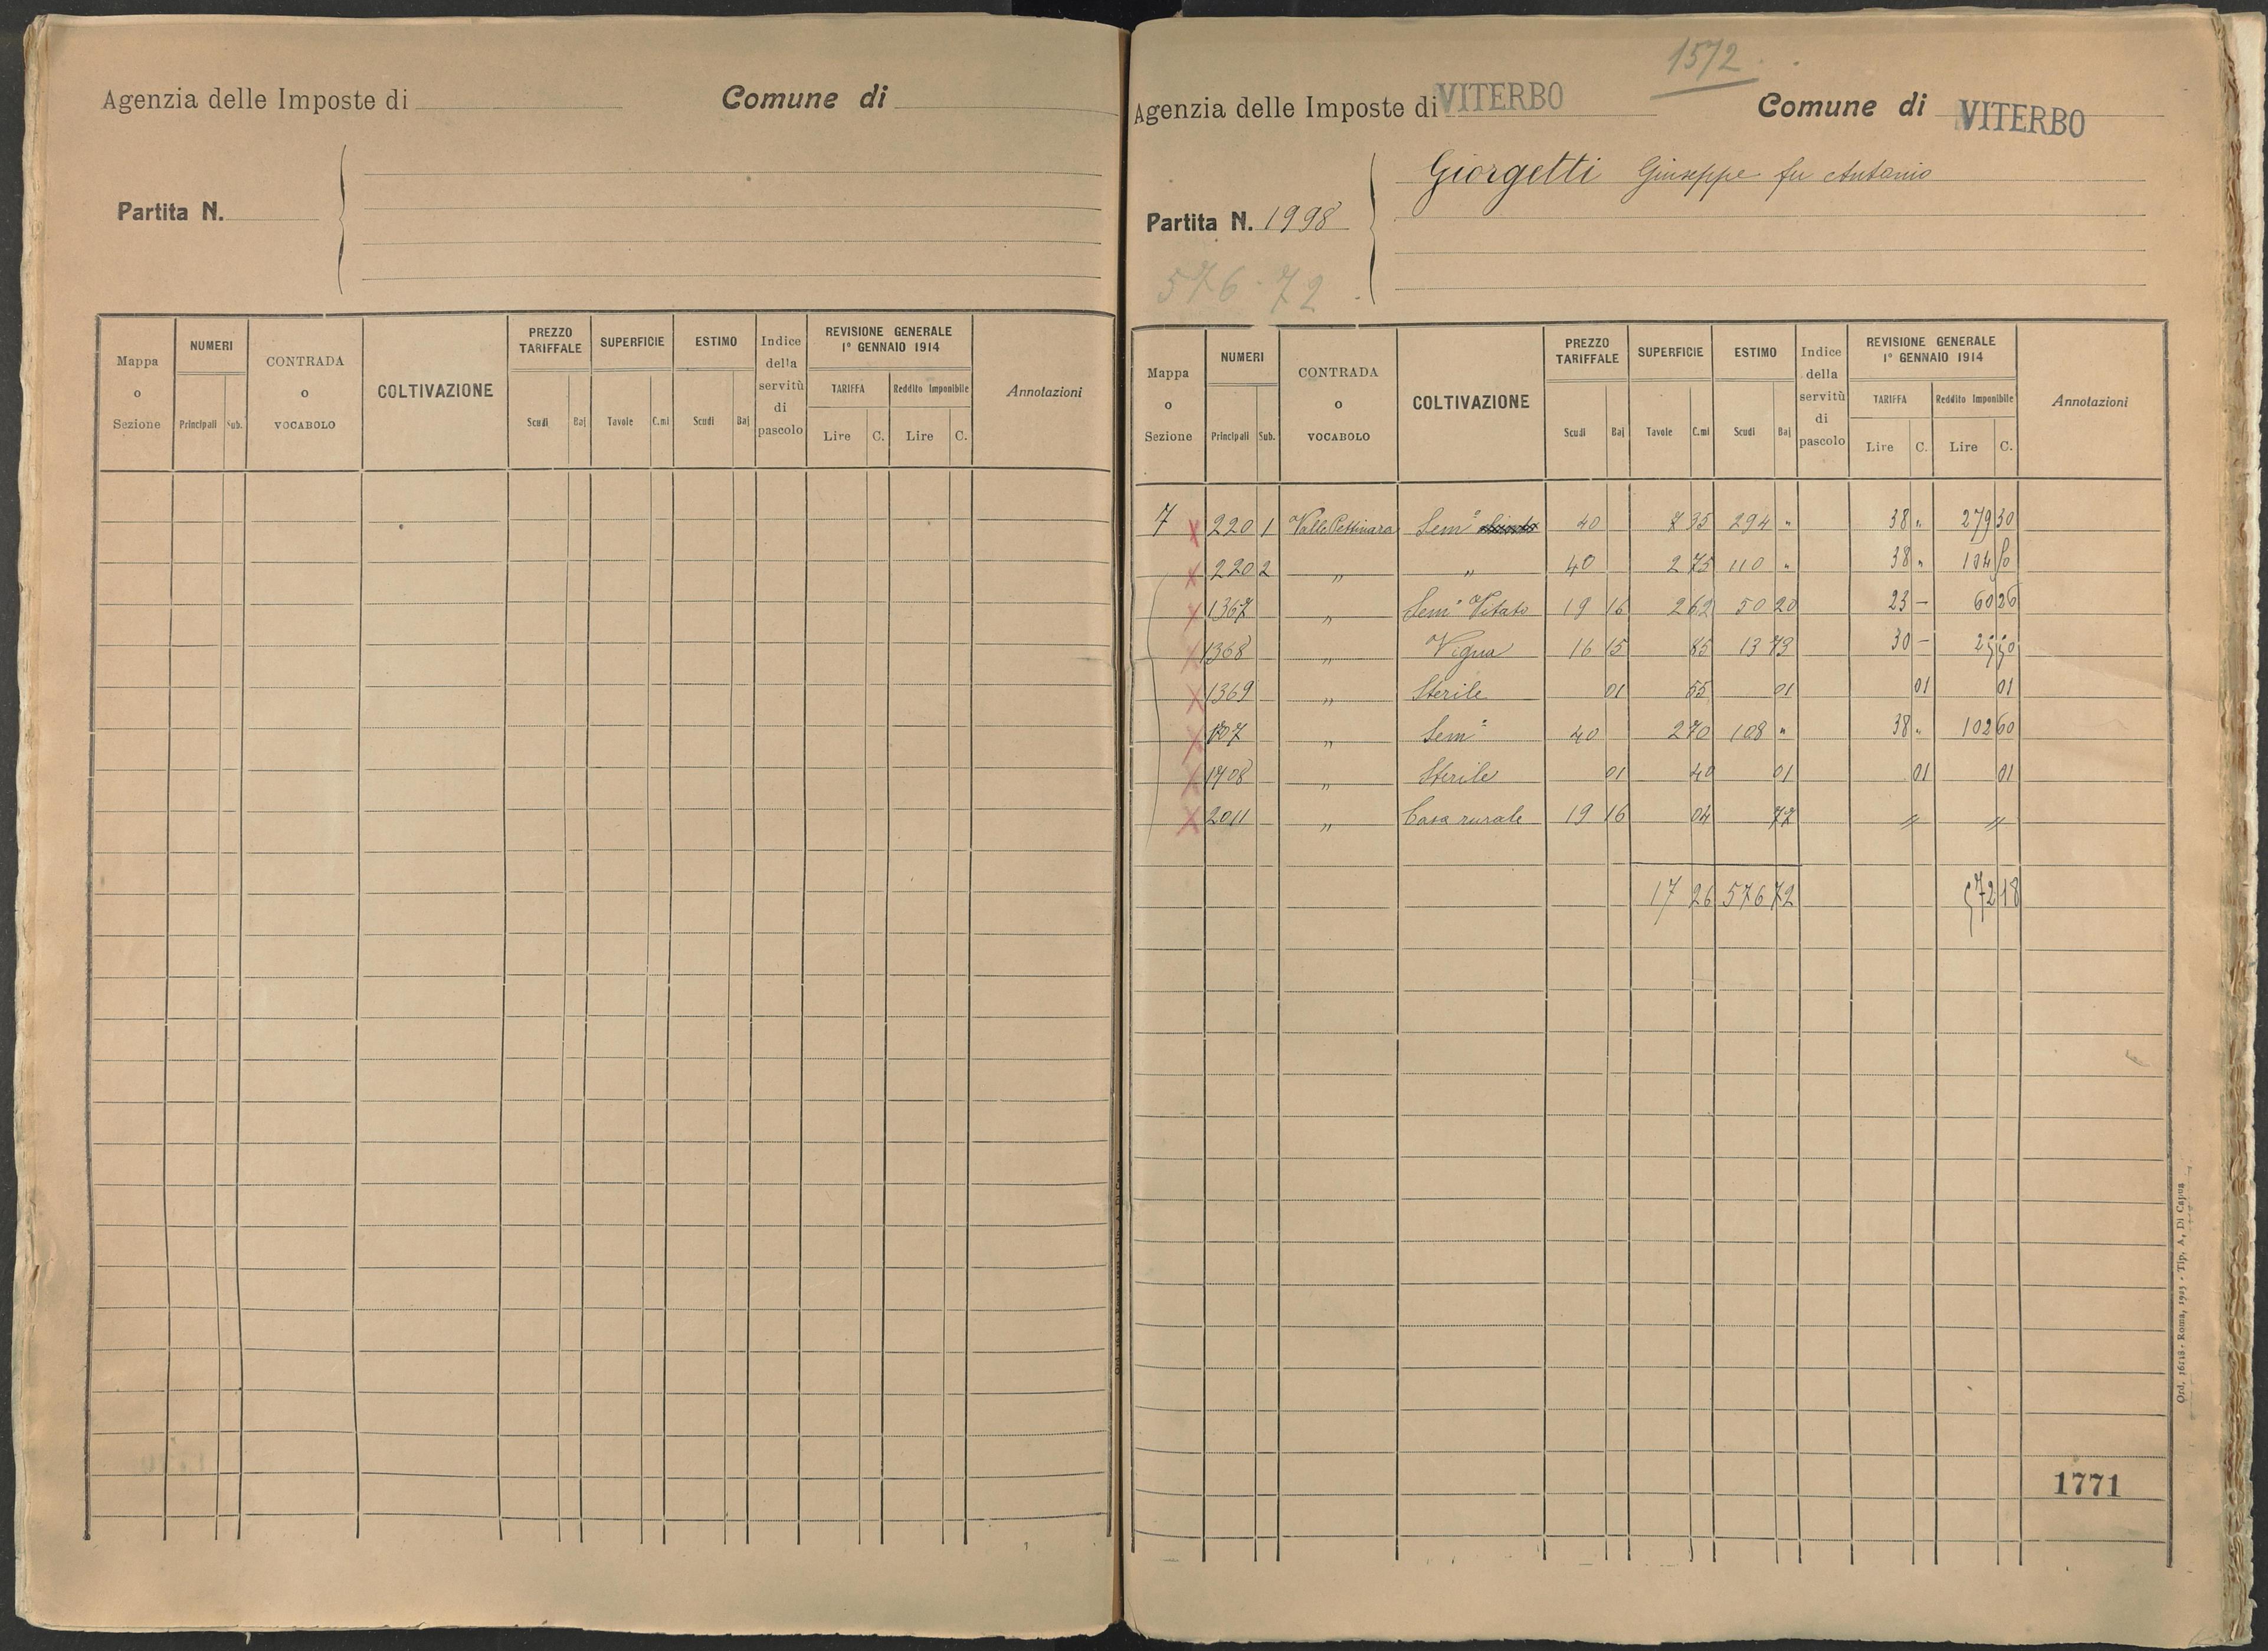 Agenzia delle Imposte di
Comune di
Partita N.
Mappa o Sezione
NUMERI
Principali
Sub.
CONTRADA o VOCABOLO
COLTIVAZIONE
PREZZO TARIFFALE
Scudi
Baj
SUPERFICIE
Tavole
C.mi
ESTIMO
Scudi
Baj
Indice della servitù di pascolo
REVISIONE GENERALE
1° GENNAIO 1914
TARIFFA
Reddito Imponibile
Lire
C.
Lire
C.
Annotazioni
1572
Agenzia delle Imposte di VITERBO
Comune di VITERBO
Giorgetti Giuseppe fu Antonio
Partita N. 1998
576.72
Mappa o Sezione
NUMERI
Principali
Sub.
CONTRADA o VOCABOLO
COLTIVAZIONE
PREZZO TARIFFALE
Scudi
Baj
SUPERFICIE
Tavole
C.mi
ESTIMO
Scudi
Baj
Indice della servitù di pascolo
REVISIONE GENERALE
1° GENNAIO 1914
TARIFFA
Reddito Imponibile
Lire
C.
Lire
C.
Annotazioni
7 x 220 1 Valle Pettinara Sem° 40 7 35 294 " 38 " 279 30
x 220 2 " " 40 2 75 110 " 38 " 104 50
x 1367 " Sem° Vitato 19 16 2 62 50 20 23 - 60 26
x 1368 " Vigna 16 15 85 13 73 30 - 25 50
x 1369 " Sterile 01 55 01 01 01
x " Sem° 40 2 70 108 " 38 " 102 60
x 1708 " Sterile 01 40 01 01 01
x 2011 " Casa rurale 19 16 04 77 " "
17 26 576 72 572 18
1771
Ord. 16118 - Roma, 1923 - Tip. A. Di Capua